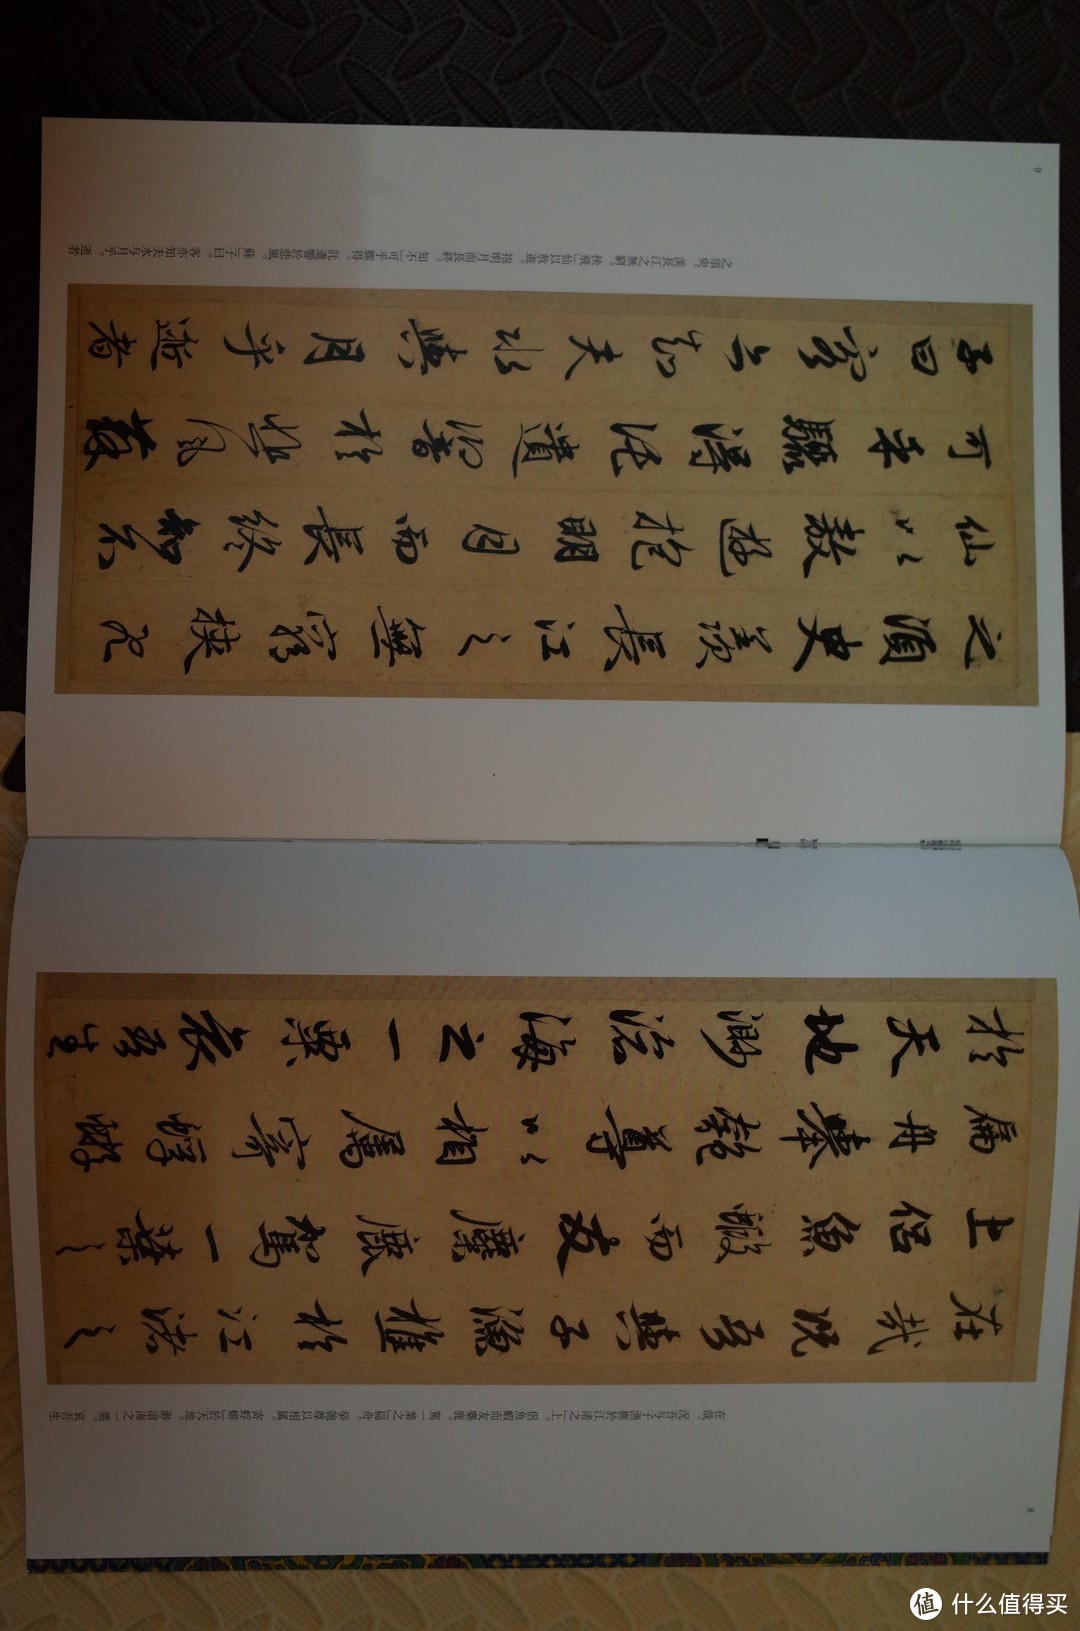 在哉。況吾与子漁樵於江渚之」上。侶魚蝦而友麋鹿。駕一葉之」扁舟。舉匏尊以相属。寄蜉蝣」於天地。渺滄海之一粟。哀吾生
在哉況吾與子漁樵於江渚之
上侶魚蝦而友麋鹿駕一葉之
扁舟舉匏尊以相屬寄蜉蝣
於天地渺滄海之一粟哀吾生
8
之須臾羨長江之無窮挾飛
仙以敖遊抱明月而長終知不
可乎驟得託遺響於悲風蘇
子曰客亦知夫水與月乎逝者
之須臾。羨長江之無窮。挾飛」仙以敖遊。抱明月而長終。知不」可乎驟得。託遺響於悲風。蘇」子曰。客亦知夫水与月乎。逝者
9
值 什么值得买